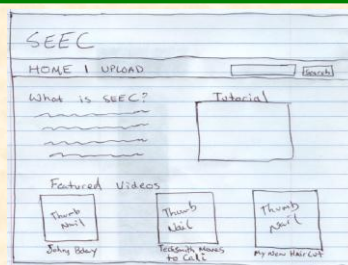 SEEC
HOME | UPLOAD
Search
What is SEEC?
Tutorial
Featured Videos
Thumb Nail
Thumb Nail
Thumb Nail
Techsmith Moves to Cali
My New Hair Cut